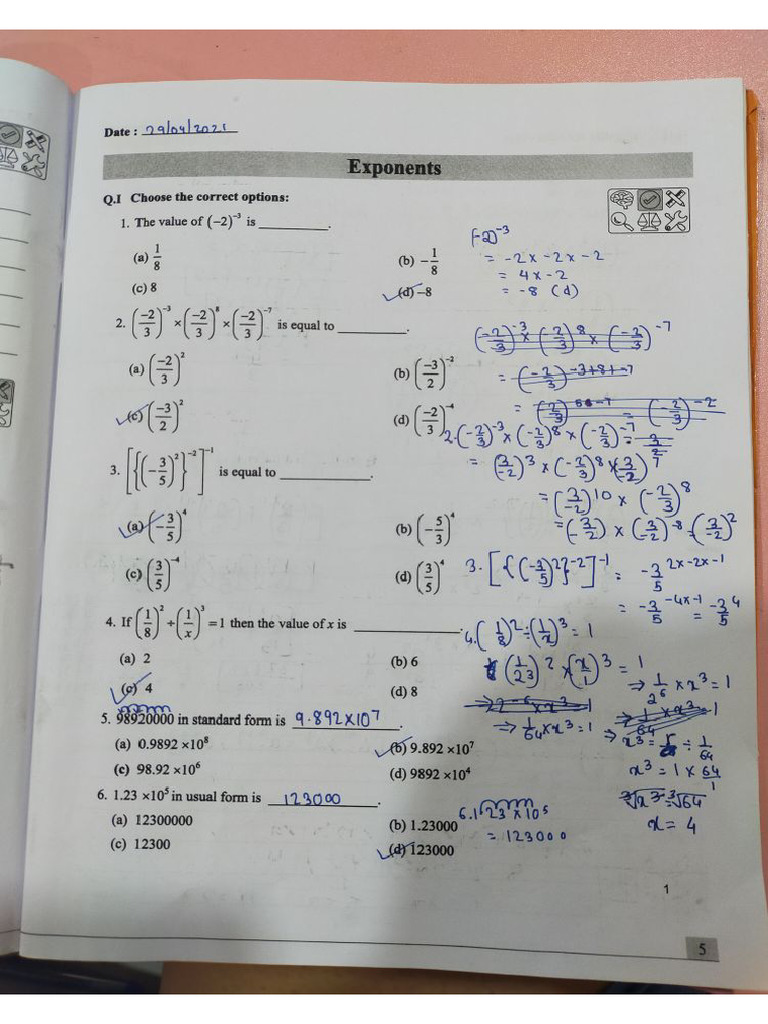 Date : 29/04/2021
Exponents
Q.I Choose the correct options:
1. The value of (−2)⁻³ is ________.
(a) 1/8
(b) −1/8
(c) 8
(d) −8
(-2)⁻³
= -2 x -2 x -2
= 4 x -2
= -8 (d)
2. (−2/3)⁻³ × (−2/3)⁸ × (−2/3)⁻⁷ is equal to ________.
(a) (−2/3)²
(b) (−3/2)⁻²
(c) (−3/2)²
(d) (−2/3)⁻⁴
(-2/3)⁻³ x (-2/3)⁸ x (-2/3)⁻⁷
= (-2/3)⁻³⁺⁸⁺⁻⁷
2. (-2/3)⁻³ x (-2/3)⁸ x (-2/3)⁻⁷
= (3/-2)³ x (-2/3)⁸ x (3/-2)⁷
= (3/-2)¹⁰ x (-2/3)⁸
3. [{(−3/5)²}⁻²]⁻¹ is equal to ________.
(a) (−3/5)⁴
(b) (−5/3)⁴
(c) (3/5)⁻⁴
(d) (3/5)⁴
3. [{(-3/5)²}⁻²]⁻¹ = -3/5 ²ˣ⁻²ˣ⁻¹
= -3/5 ⁻⁴ˣ⁻¹ = -3/5 ⁴
4. If (1/8)² ÷ (1/x)³ = 1 then the value of x is ________.
(a) 2
(b) 6
(c) 4
(d) 8
4. (1/8)² ÷ (1/x)³ = 1
(1/2³)² x (x/1)³ = 1
⇒ 1/2⁶ x x³ = 1
⇒ 1/64 x x³ = 1
⇒ x³ = 1 ÷ 1/64
x³ = 1 x 64/1
³√x³ = ³√64
x = 4
5. 98920000 in standard form is 9.892X10⁷.
(a) 0.9892 ×10⁸
(b) 9.892 ×10⁷
(c) 98.92 ×10⁶
(d) 9892 ×10⁴
6. 1.23 ×10⁵ in usual form is 123000.
(a) 12300000
(b) 1.23000
(c) 12300
(d) 123000
6. 1.23 x 10⁵
= 123000
1
5